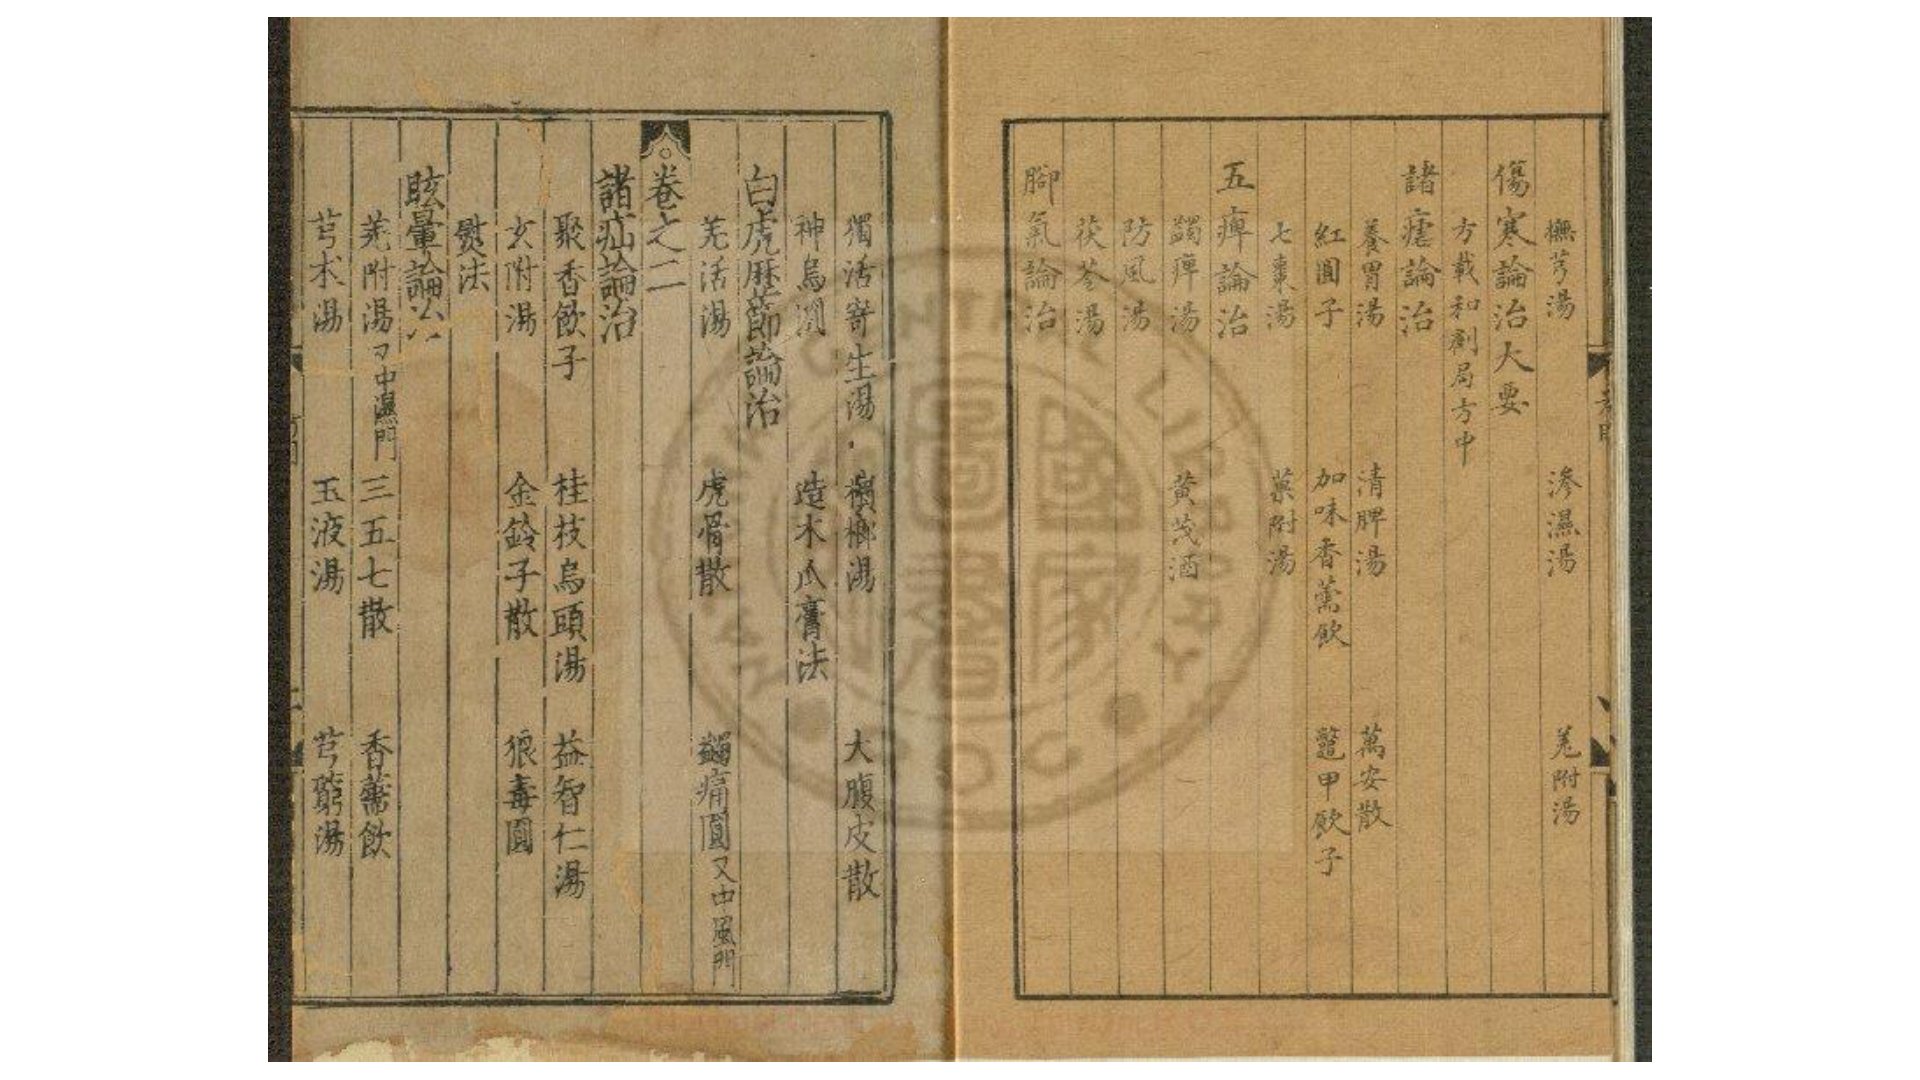 撫芎湯 滲濕湯 羗附湯
傷寒論治大要
方載和劑局方中
諸瘧論治
養胃湯 清脾湯 萬安散
紅圓子 加味香薷飲 鼈甲飲子
七棗湯 菓附湯
五痺論治
蠲痺湯 黄芪酒
防風湯
茯苓湯
腳氣論治
獨活寄生湯 檳榔湯 大腹皮散
神烏圓 造木瓜膏法
白虎歷節論治
羌活湯 虎骨散 蠲痛圓又中風門
卷之二
諸疝論治
聚香飲子 桂枝烏頭湯 益智仁湯
玄附湯 金鈴子散 狼毒圓
熨法
眩暈論治
羌附湯又中濕門 三五七散 香薷飲
芎朮湯 玉液湯 芎藭湯